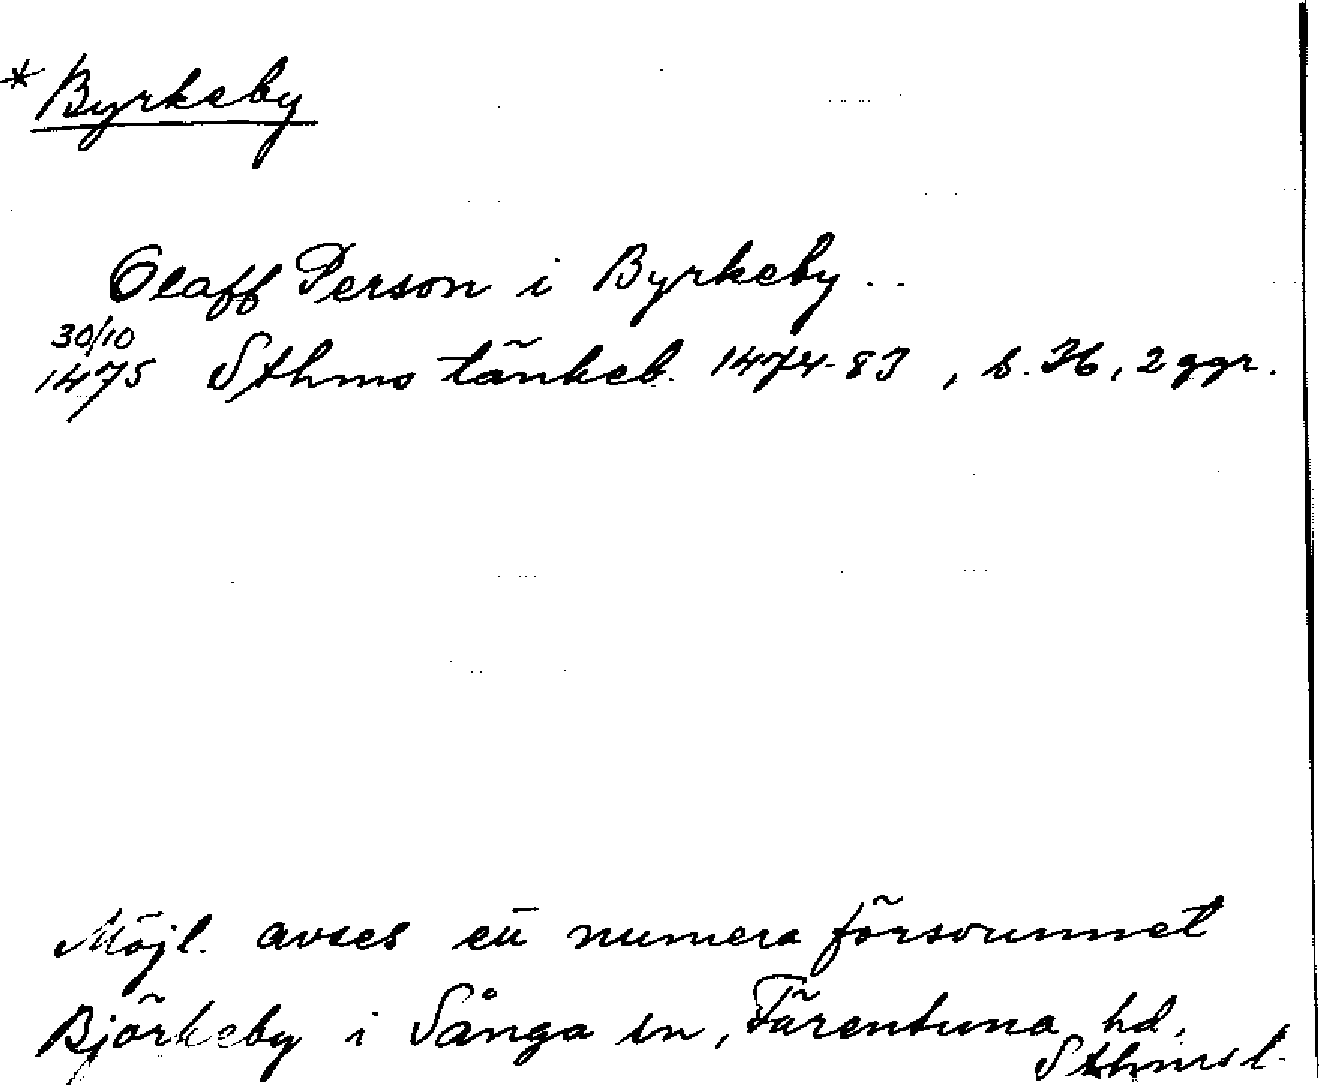 * Byrkeby
Olaff Person i Byrkeby..
30/10
1475 Sthms tänkeb. 1474-83, s. 36, 2 ggr.
Möjl. avses ett numera försvunnet
Björkeby i Sånga sn, Färentuna hd,
Sthms l.